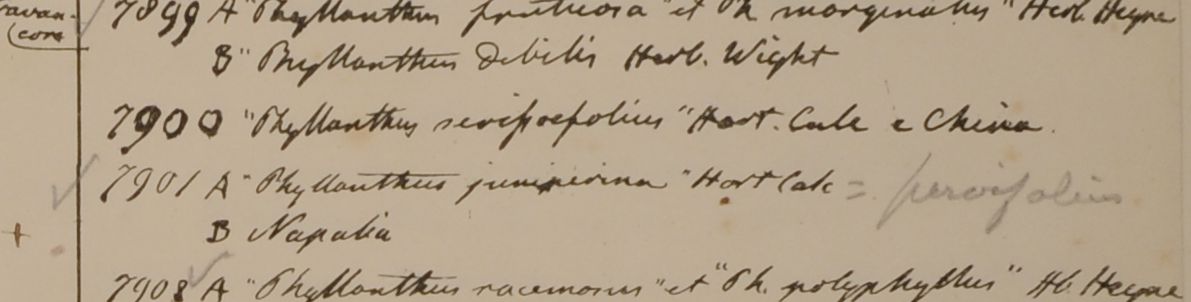 avan-
core
7899 A "Phyllanthus fruticosa" et Ph. marginatus" Herb. Heyne
B "Phyllanthus debilis Herb. Wight
7900 "Phyllanthus" Hort. Calc e China.
7901 A "Phyllanthus juniperina" Hort Calc = parvifolius
B Napalia
7902 A "Phyllanthus racemosus" et "Ph. polyphyllus" Hb. Heyne